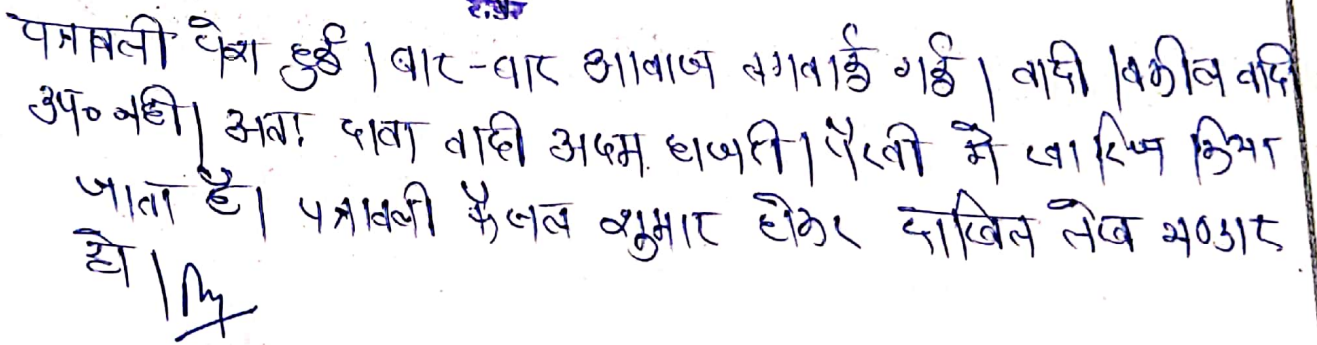 पत्रावली पेश हुई। बार-बार आवाज लगवाई गई। वादी / वकील वादी
उप० नही। अतः दावा वादी अदम हाजरी / पैरवी मे खारिज किया
जाता है। पत्रावली फैसल शुमार होकर दाखिल लेख भण्डार
हो।